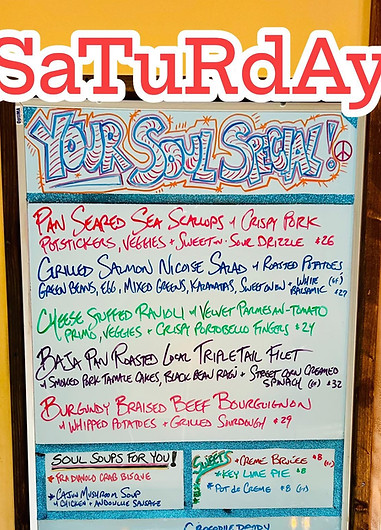 SaTuRdAy
YOUR SOUL SPECIAL!
PAN SEARED SEA SCALLOPS w CRISPY PORK
POTSTICKERS, VEGGIES + SWEET N SOUR DRIZZLE $26
GRILLED SALMON NICOISE SALAD w ROASTED POTATOES
GREEN BEANS, EGG, MIXED GREENS, KALAMATAS, SWEET ONION + WHITE BALSAMIC (GF) $27
CHEESE STUFFED RAVIOLI w VELVET PARMESAN-TOMATO
PRIMO, VEGGIES + CRISPY PORTOBELLO FINGERS $24
BAJA PAN ROASTED LOCAL TRIPLETAIL FILET
w SMOKED PORK TAMALE CAKES, BLACK BEAN RAGU + STREET CORN CREAMED
SPINACH (GF) $32
BURGUNDY BRAISED BEEF BOURGUIGNON
w WHIPPED POTATOES + GRILLED SOURDOUGH $29
SOUL SOUPS FOR YOU!
* FRA DIAVOLO CRAB BISQUE
* CAJUN MUSHROOM SOUP
w CHICKEN + ANDOUILLE SAUSAGE
SWEETS
* CREME BRULEE $8 (GF)
* KEY LIME PIE $8
* POT DE CREME $8 (GF)